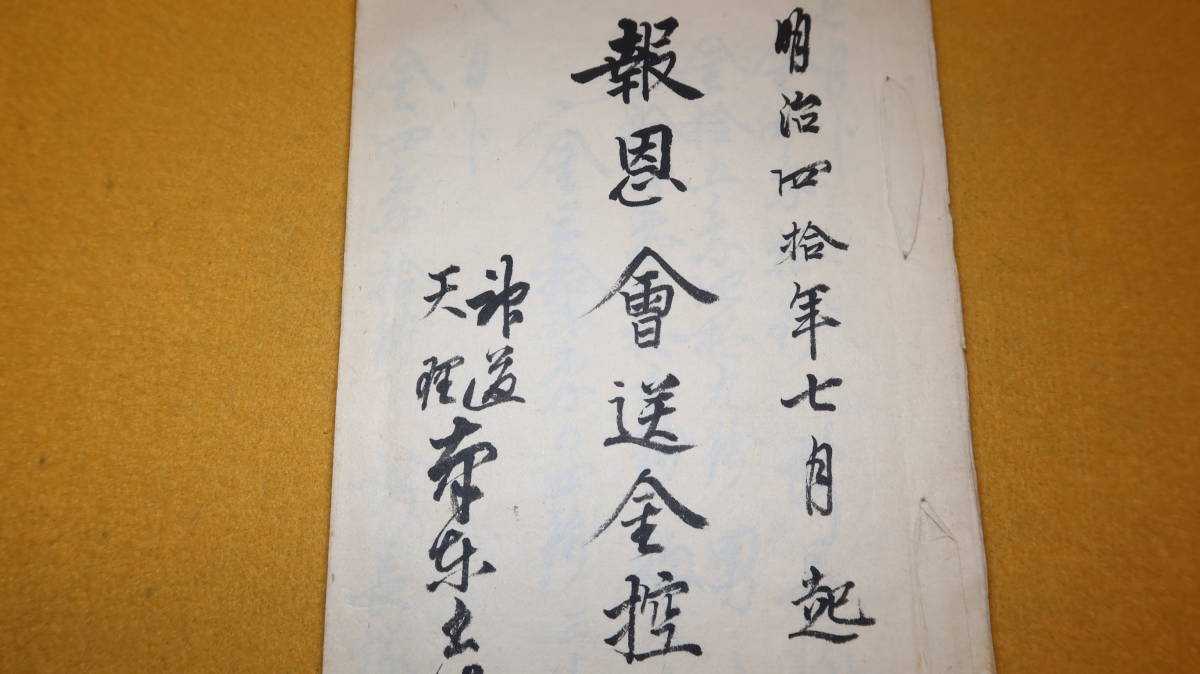 明治四拾年七月起
報恩會送金控
神道
天理